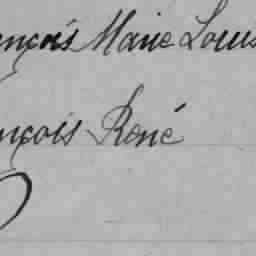 ençois Marie Louis
nçois René